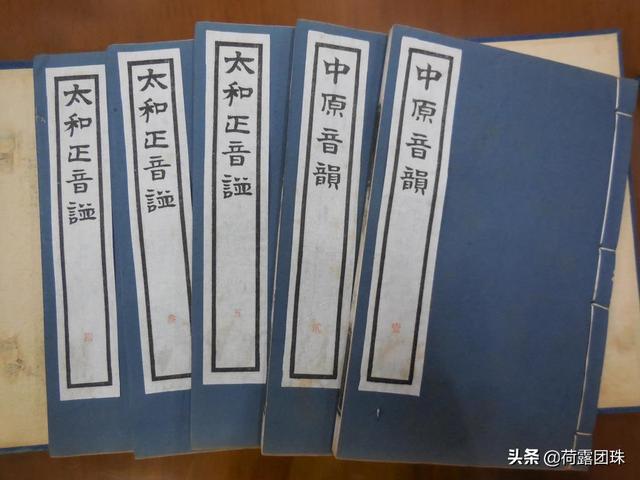 中原音韻
壹
中原音韻
貳
太和正音譜
五
太和正音譜
叁
太和正音譜
头条 @荷露团珠